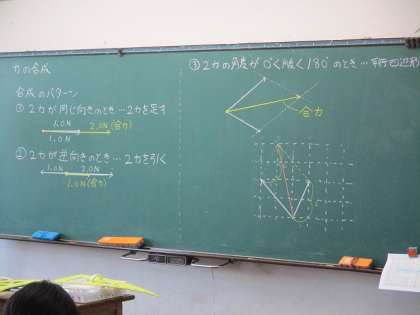 力の合成
合成のパターン
① 2力が同じ向きのとき…2力を足す
1.0N 2.0N(合力)
1.0N
② 2力が逆向きのとき…2力を引く
1.0N 2.0N
1.0N(合力)
③ 2力の角度が0°<角度<180°のとき…平行四辺形
合力